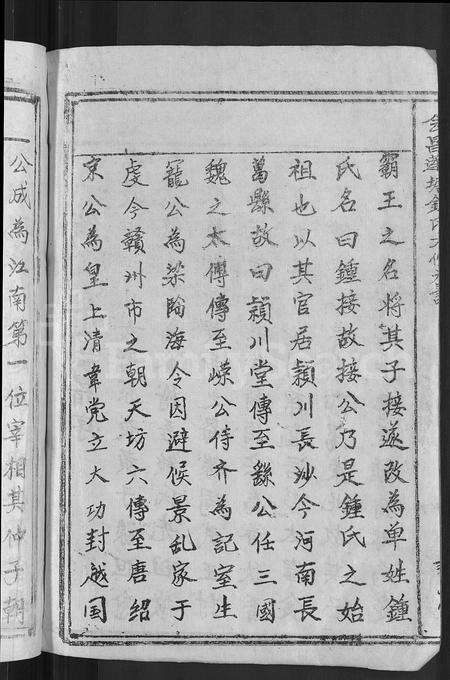 霸王之名将其子接遂改為单姓鍾
氏名曰鍾接故接公乃是鍾氏之始
祖也以其官居頴川長沙今河南長
葛縣故曰頴川堂傳至繇公任三國
魏之太傅傳至嶸公侍齐為記室生
寵公為梁临海令因避候景乱家于
虔今贛州市之朝天坊六傳至唐紹
京公為皇上清韋党立大功封越国
公成為江南第一位宰相其仲子朝